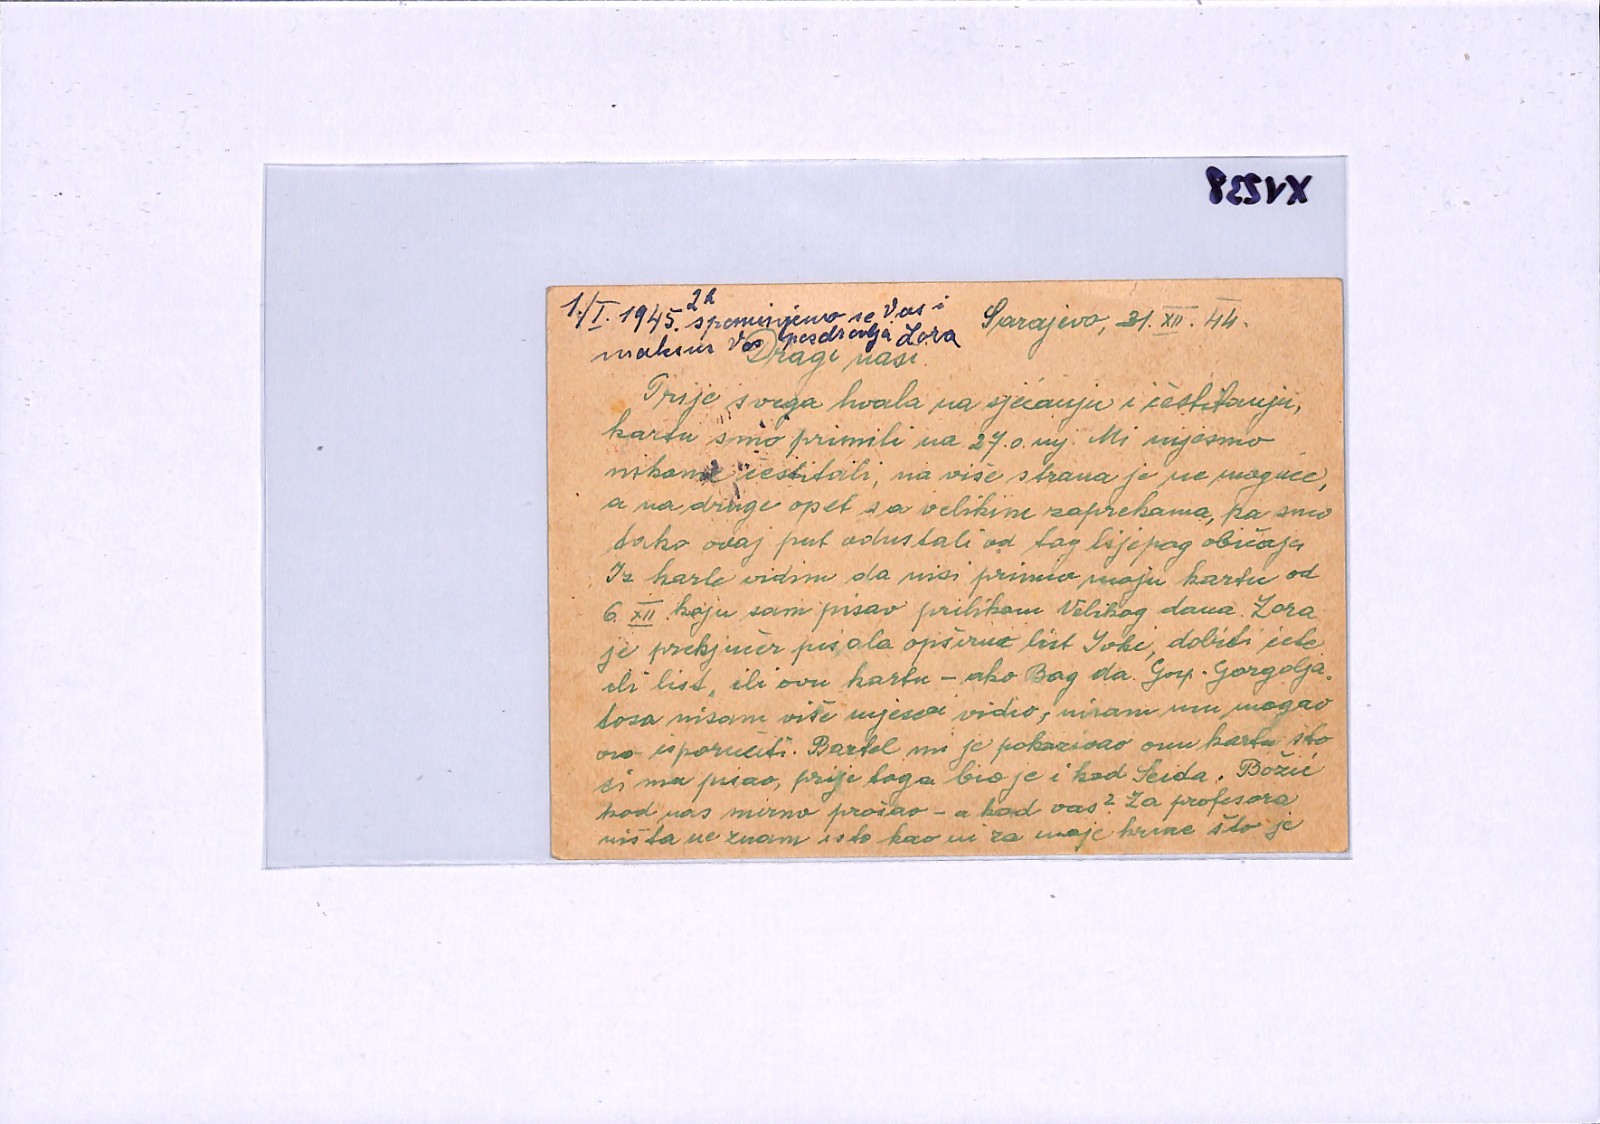 XV238
1./I. 1945. 2h spominjemo se Vas i
Vas pozdravlja Zora
Sarajevo, 31. XII. 44.
Dragi naši
Prije svega hvala na sjećanju i čestitanju,
kartu smo primili na 27. o. mj. Mi nijesmo
nikome čestitali, na više strana je ne moguće,
a na druge opet sa velikim zaprekama, pa smo
tako ovaj put odustali od tog lijepog običaja
Iz karte vidim da nisi primio moju kartu od
6. XII. koju sam pisao prilikom Velikog dana. Zora
je prekjučer pisala opširno list Joki, dobiti ćete
ili list, ili ovu kartu – ako Bog da. Gosp. Gorgolja
tosa nisam više mjeseci vidio, nisam mu mogao
ovo isporučiti. Bartel mi je pokazivao onu kartu što
si mu pisao, prije toga bio je i kod Seida. Božić
kod nas mirno prošao – a kod vas? Za profesora
ništa ne znam isto kao ni za moje krme što je